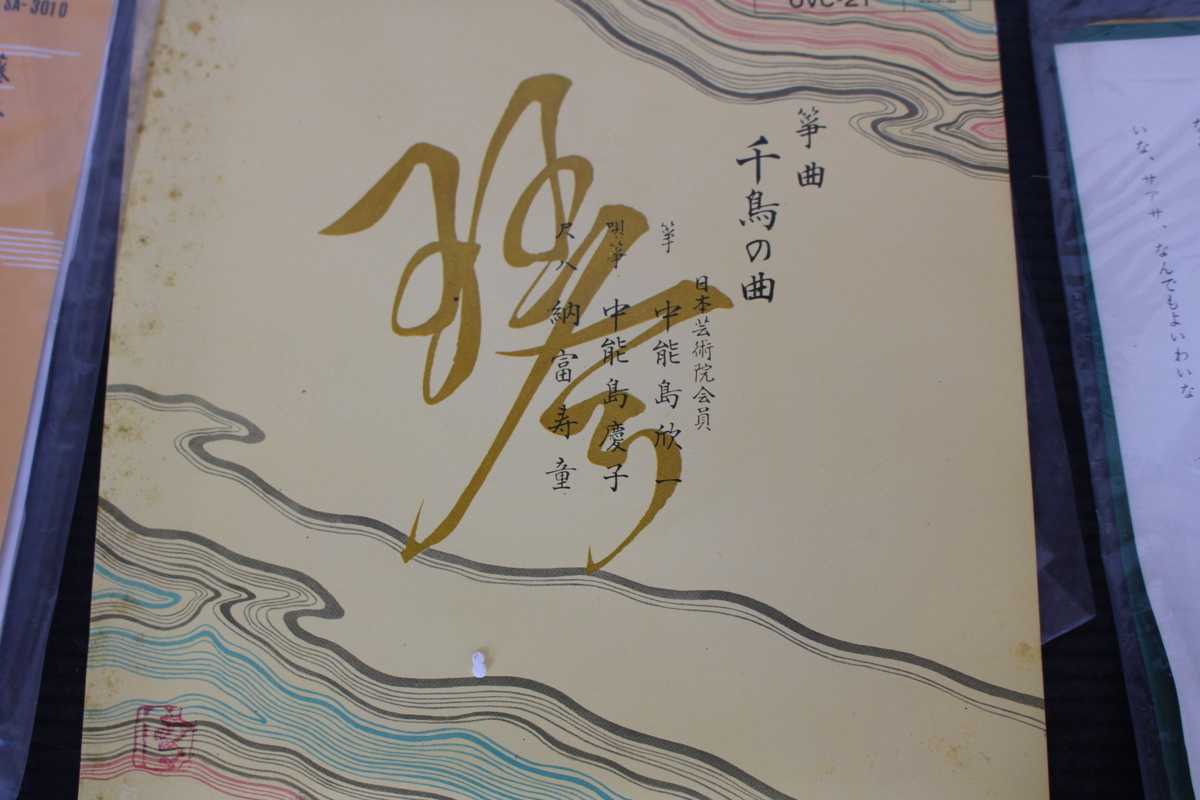 SA-3010
OVC-21
箏曲
千鳥の曲
日本芸術院会員
箏 中能島欣一
唄箏 中能島慶子
尺八 納富寿童
いな、サァサ、なんでもよいわいな